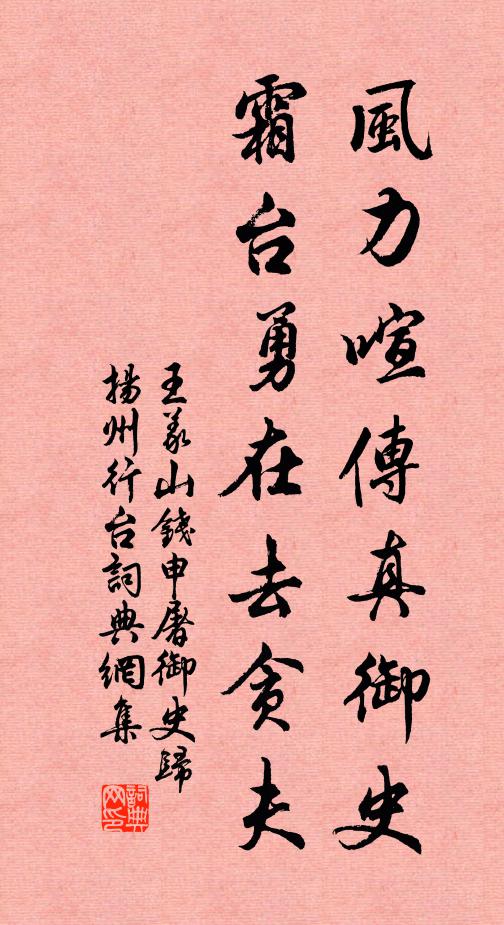 風力喧傳真御史
霜台勇在去貪夫
王義山錢申屠御史歸
揚州行台詞典網集
詞典
网印